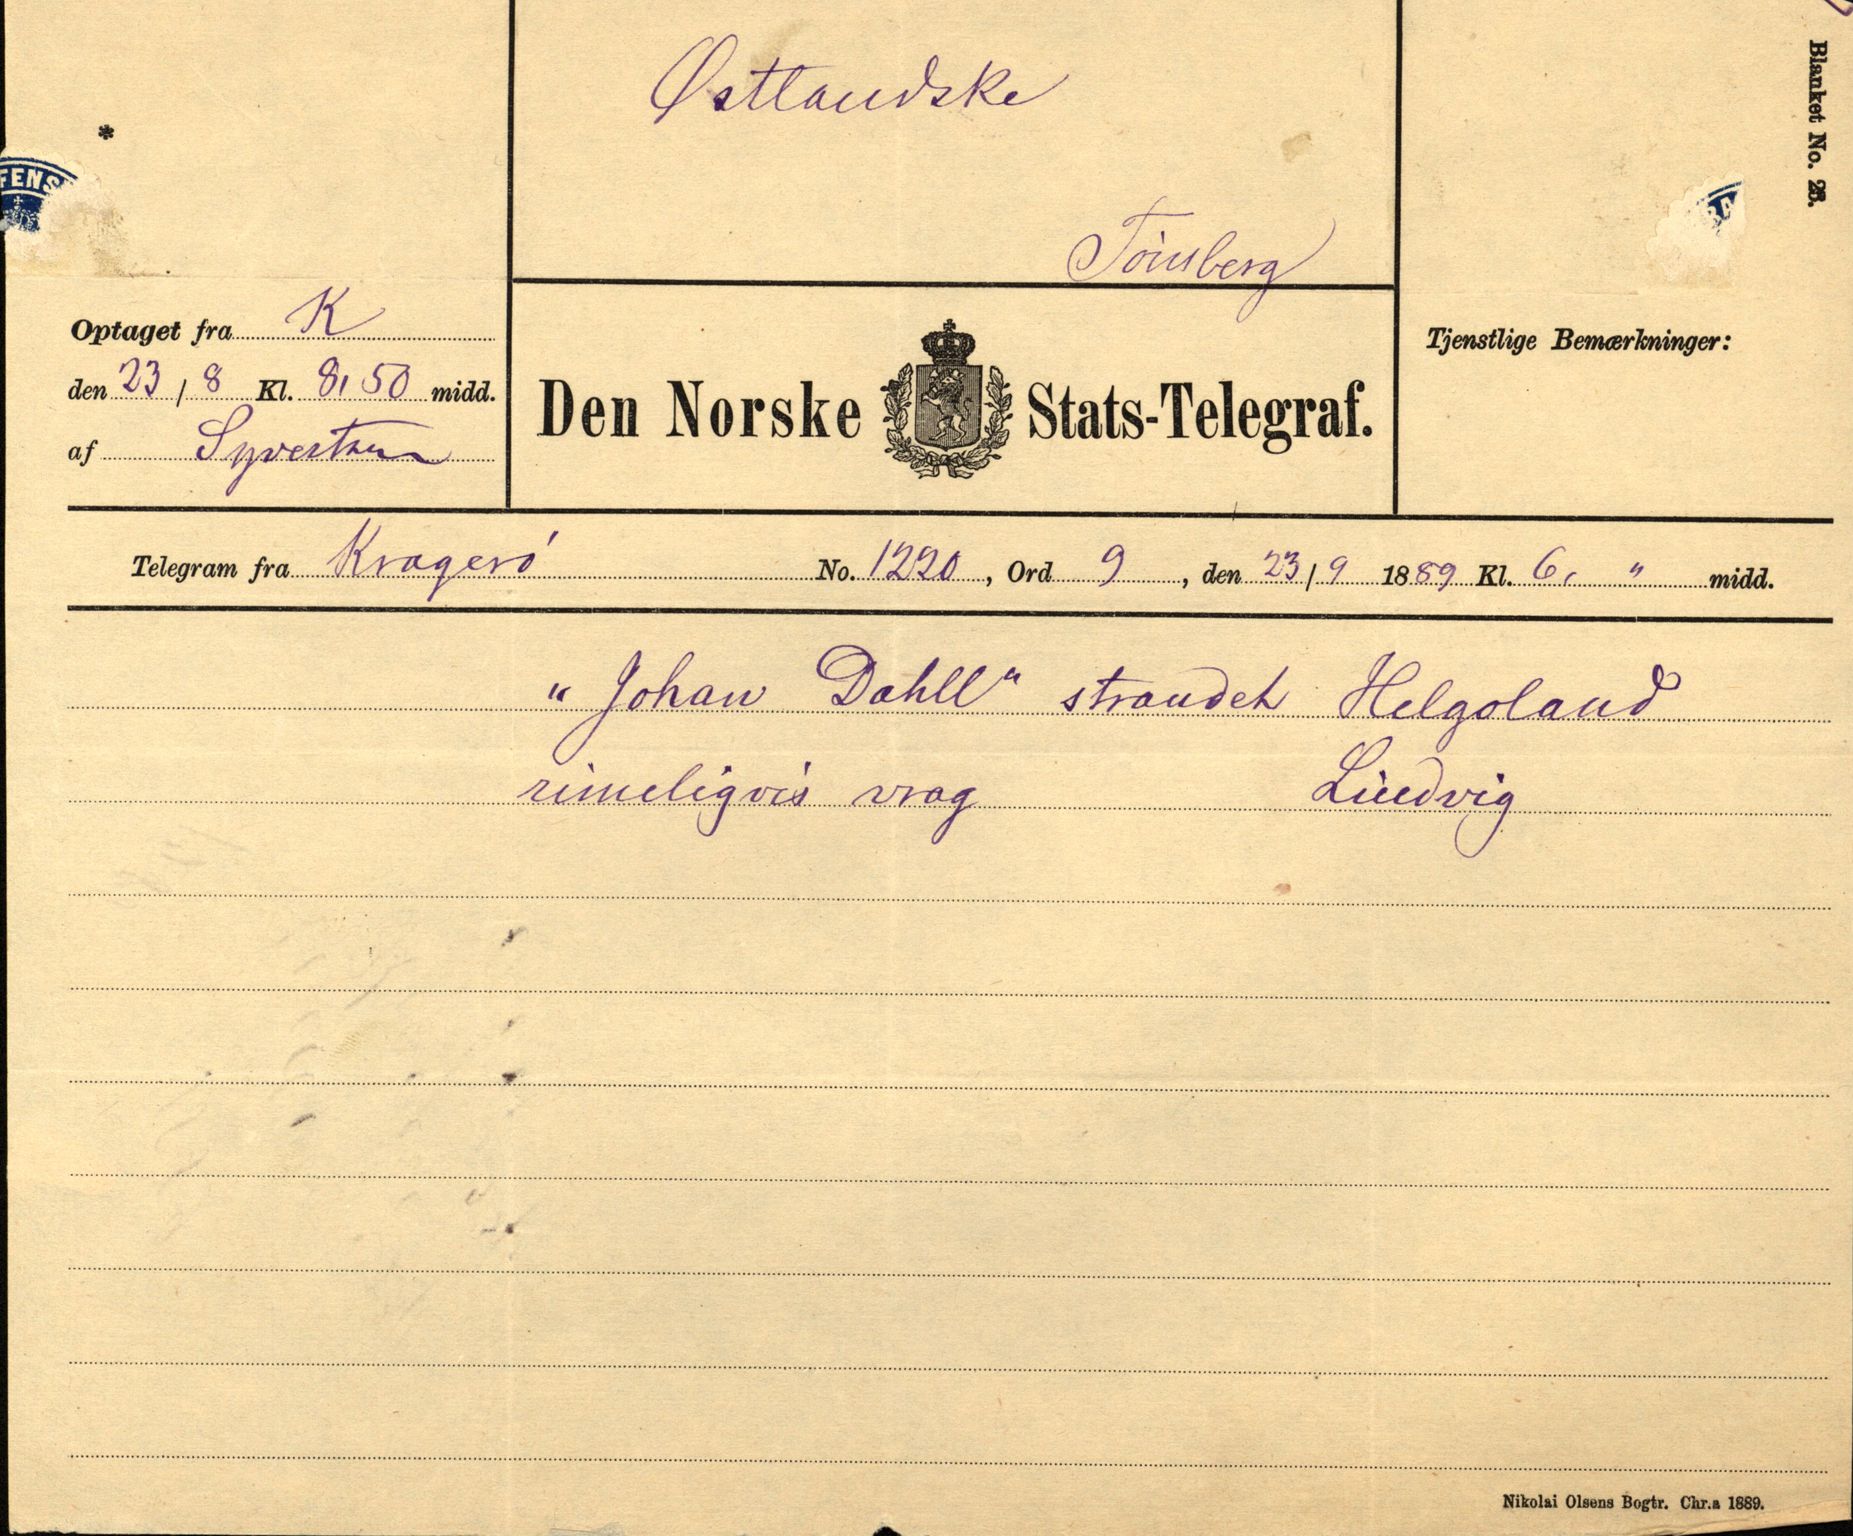 Blanket No. 26.
Østlandske
*
FENS
Tönsberg
Optaget fra K
den 23/8 Kl. 8,50 midd.
af
Den Norske Stats-Telegraf.
Tjenstlige Bemærkninger:
Telegram fra Kragerö No. 1220, Ord 9, den 23/9 1889 Kl. 6, " midd.
"Johan Dahll" strandet Helgoland
rimeligvis vrag Ludvig
Nikolai Olsens Bogtr. Chr.a 1889.